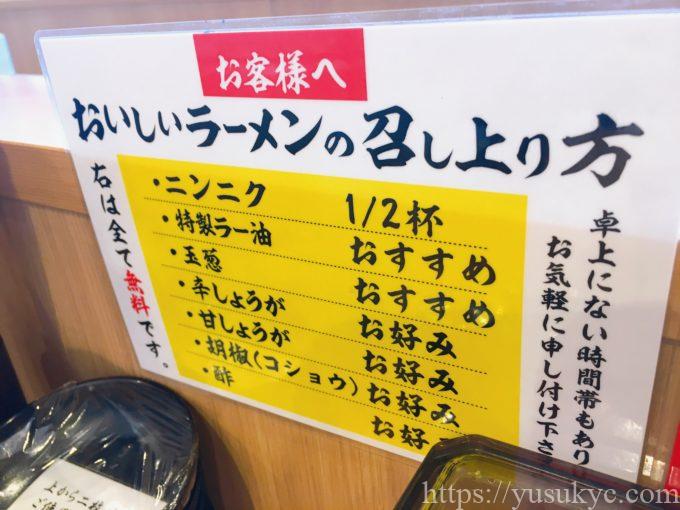 お客様へ
おいしいラーメンの召し上り方
・ニンニク 1/2杯
・特製ラー油 おすすめ
・玉葱 おすすめ
・辛しょうが お好み
・甘しょうが お好み
・胡椒(コショウ) お好み
・酢 お好
卓上にない時間帯もあり
お気軽に申し付け下さ
右は全て無料です。
上から二枚
https://yusukyc.com